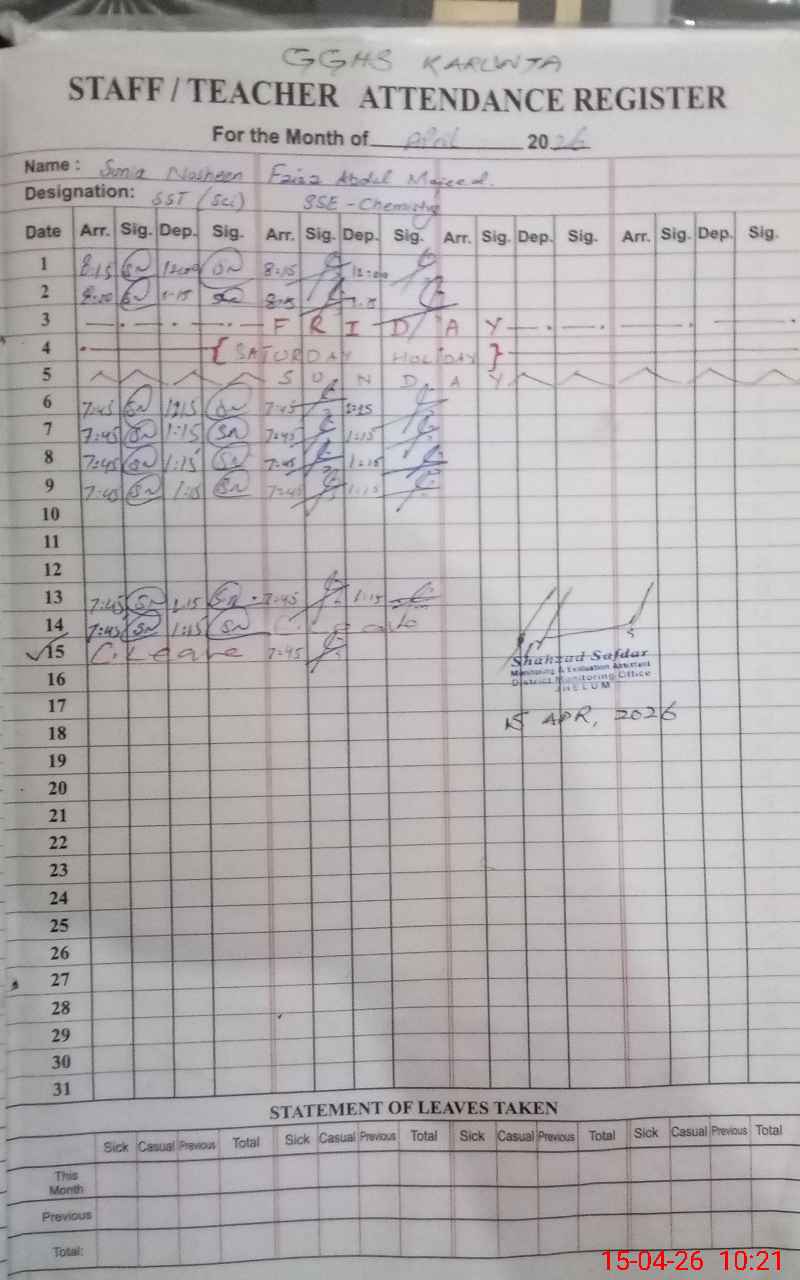 GGHS KARUNTA
STAFF / TEACHER ATTENDANCE REGISTER
For the Month of April 2026
Name : Sonia Nosheen Faiza Abdul Majeed.
Designation: SST (Sci) SSE - Chemistry
Date Arr. Sig. Dep. Sig. Arr. Sig. Dep. Sig. Arr. Sig. Dep. Sig. Arr. Sig. Dep. Sig.
1 8:15 SN 12:00 SN 8:15 12:00
2 8:00 SN 1:15 SN 8:15 1:15
3 FRIDAY
4 { SATURDAY HOLIDAY }
5 SUNDAY
6 7:45 SN SN 7:45
7 7:45 SN 1:15 SN 7:45 1:15
8 7:45 SN 1:15 SN 7:45 1:15
9 7:45 SN 1:15 SN 7:45 1:15
10
11
12
13 7:45 SN 1:15 SN 7:45 1:15
14 7:45 SN 1:15 SN
15 C. Leave 7:45
Shahzad Safdar
Monitoring & Evaluation Assistant
District Monitoring Office
JHELUM
15 APR, 2026
16
17
18
19
20
21
22
23
24
25
26
27
28
29
30
31
STATEMENT OF LEAVES TAKEN
Sick Casual Previous Total Sick Casual Previous Total Sick Casual Previous Total Sick Casual Previous Total
This Month
Previous
Total:
15-04-26 10:21